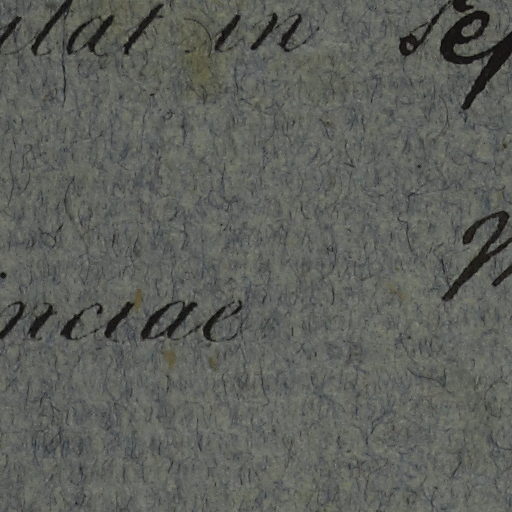 ulat in Sep
nciae